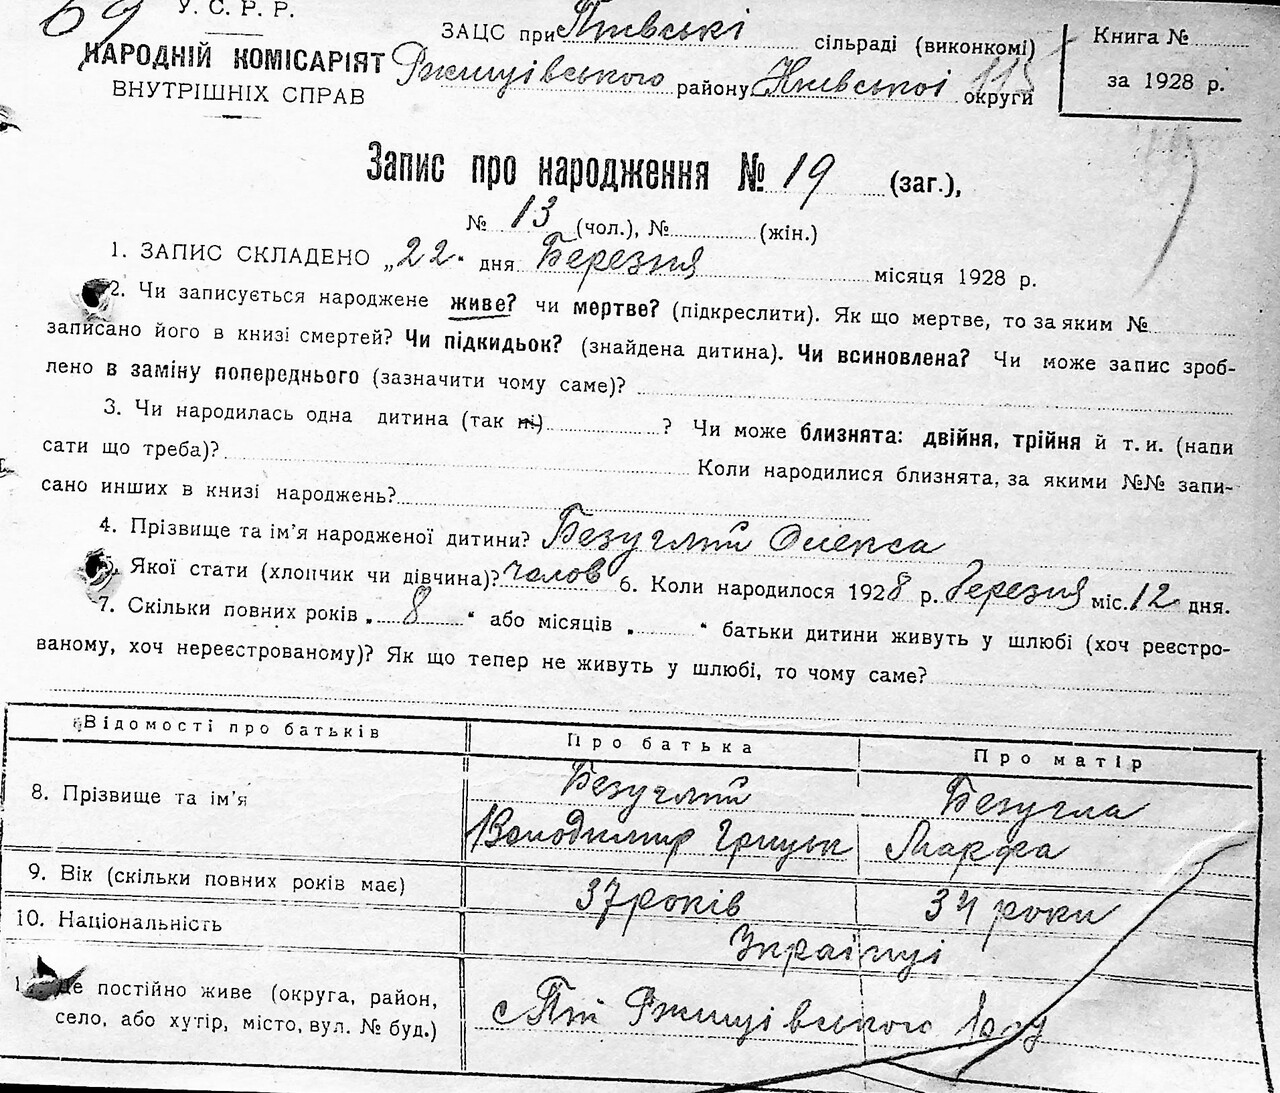 69
У. С. Р. Р.
НАРОДНІЙ КОМІСАРІЯТ
ВНУТРІШНІХ СПРАВ
ЗАЦС при Пиївські сільраді (виконкомі)
Ржищівського району Київської округи
113
Книга №
за 1928 р.
Запис про народження № 19 (заг.),
№ 13 (чол.), № (жін.)
1. ЗАПИС СКЛАДЕНО „22" дня Березня місяця 1928 р.
2. Чи записується народжене живе? чи мертве? (підкреслити). Як що мертве, то за яким №
записано його в книзі смертей? Чи підкидьок? (знайдена дитина). Чи всиновлена? Чи може запис зроб-
лено в заміну попереднього (зазначити чому саме)?
3. Чи народилась одна дитина (так ні) ? Чи може близнята: двійня, трійня й т. и. (напи
сати що треба)? Коли народилися близнята, за якими №№ запи-
сано инших в книзі народжень?
4. Прізвище та ім'я народженої дитини? Безуглий Олекса
Якої стати (хлопчик чи дівчина)? чолов 6. Коли народилося 1928 р. Березня міс. 12 дня.
7. Скільки повних років „ 8 " або місяців „ " батьки дитини живуть у шлюбі (хоч реєстро-
ваному, хоч нереєстрованому)? Як що тепер не живуть у шлюбі, то чому саме?
Відомості про батьків Про батька Про матір
8. Прізвище та ім'я Безуглий Безугла
Володимир Грицьк Марфа
9. Вік (скільки повних років має) 37 років 34 роки
10. Національність Українці
Де постійно живе (округа, район,
село, або хутір, місто, вул. № буд.) с Пиї Ржищівського